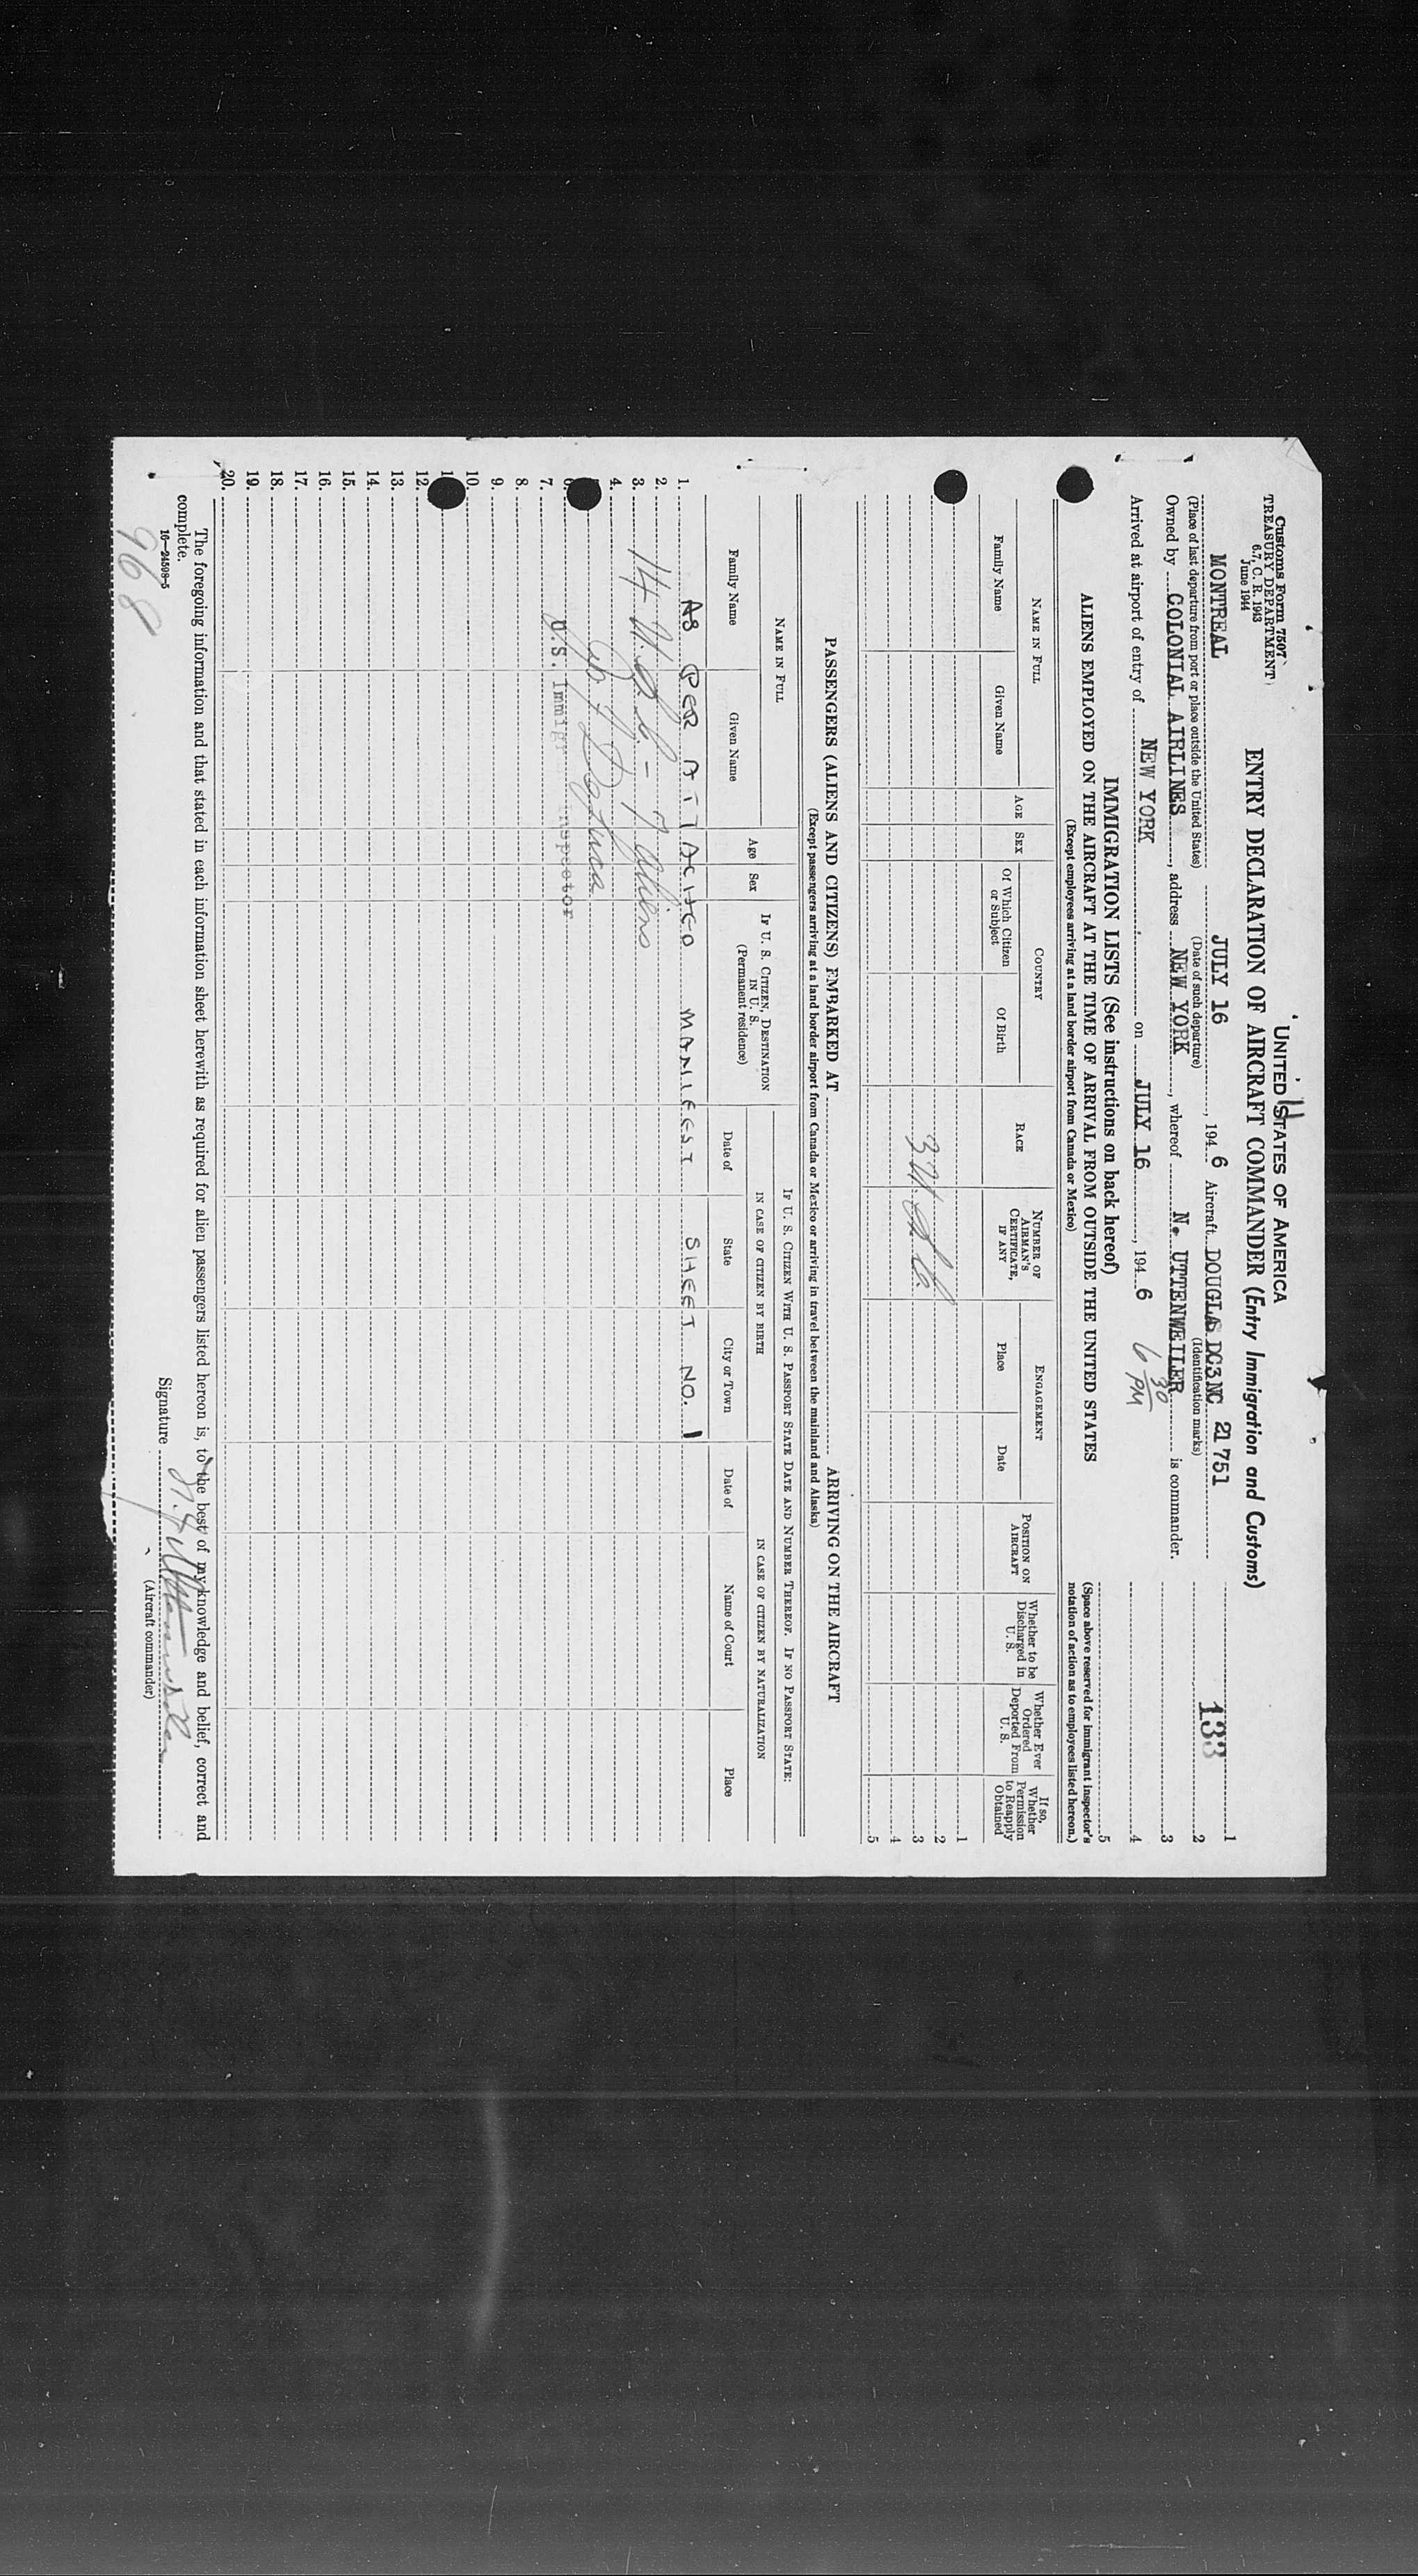 Customs Form 7507
TREASURY DEPARTMENT
6.7, C. R. 1943
June 1944
UNITED STATES OF AMERICA
ENTRY DECLARATION OF AIRCRAFT COMMANDER (Entry Immigration and Customs)
133
MONTREAL JULY 16, 194 6 Aircraft DOUGLAS DC3 NC 21751
(Place of last departure from port or place outside the United States) (Date of such departure) (Identification marks)
Owned by COLONIAL AIRLINES, address NEW YORK, whereof N. UTTENWEILER is commander.
Arrived at airport of entry of NEW YORK on JULY 16, 194 6 6 30 PM
1
2
3
4
5
(Space above reserved for immigrant inspector's notation of action as to employees listed hereon.)
IMMIGRATION LISTS (See instructions on back hereof)
ALIENS EMPLOYED ON THE AIRCRAFT AT THE TIME OF ARRIVAL FROM OUTSIDE THE UNITED STATES
(Except employees arriving at a land border airport from Canada or Mexico)
NAME IN FULL
Family Name
Given Name
AGE
SEX
COUNTRY
Of Which Citizen or Subject
Of Birth
RACE
NUMBER OF AIRMAN'S CERTIFICATE, IF ANY
ENGAGEMENT
Place
Date
POSITION ON AIRCRAFT
Whether to be Discharged in U. S.
Whether Ever Ordered Deported From U. S.
If so, Whether Permission to Reapply Obtained
1
2
3
4
5
PASSENGERS (ALIENS AND CITIZENS) EMBARKED AT ARRIVING ON THE AIRCRAFT
(Except passengers arriving at a land border airport from Canada or Mexico or arriving in travel between the mainland and Alaska)
NAME IN FULL
Family Name
Given Name
Age
Sex
IF U. S. CITIZEN, DESTINATION IN U. S.
(Permanent residence)
IF U. S. CITIZEN WITH U. S. PASSPORT STATE DATE AND NUMBER THEREOF. IF NO PASSPORT STATE:
IN CASE OF CITIZEN BY BIRTH
Date of
State
City or Town
IN CASE OF CITIZEN BY NATURALIZATION
Date of
Name of Court
Place
1. AS PER ATTACHED MANIFEST SHEET NO. 1
2.
3. 14 - 7 Aliens
4.
6.
7. U.S. Immigr Inspector
8.
9.
10.
12.
13.
14.
15.
16.
17.
18.
19.
20.
The foregoing information and that stated in each information sheet herewith as required for alien passengers listed hereon is, to the best of my knowledge and belief, correct and
complete.
16—24598-5
Signature
(Aircraft commander)
968